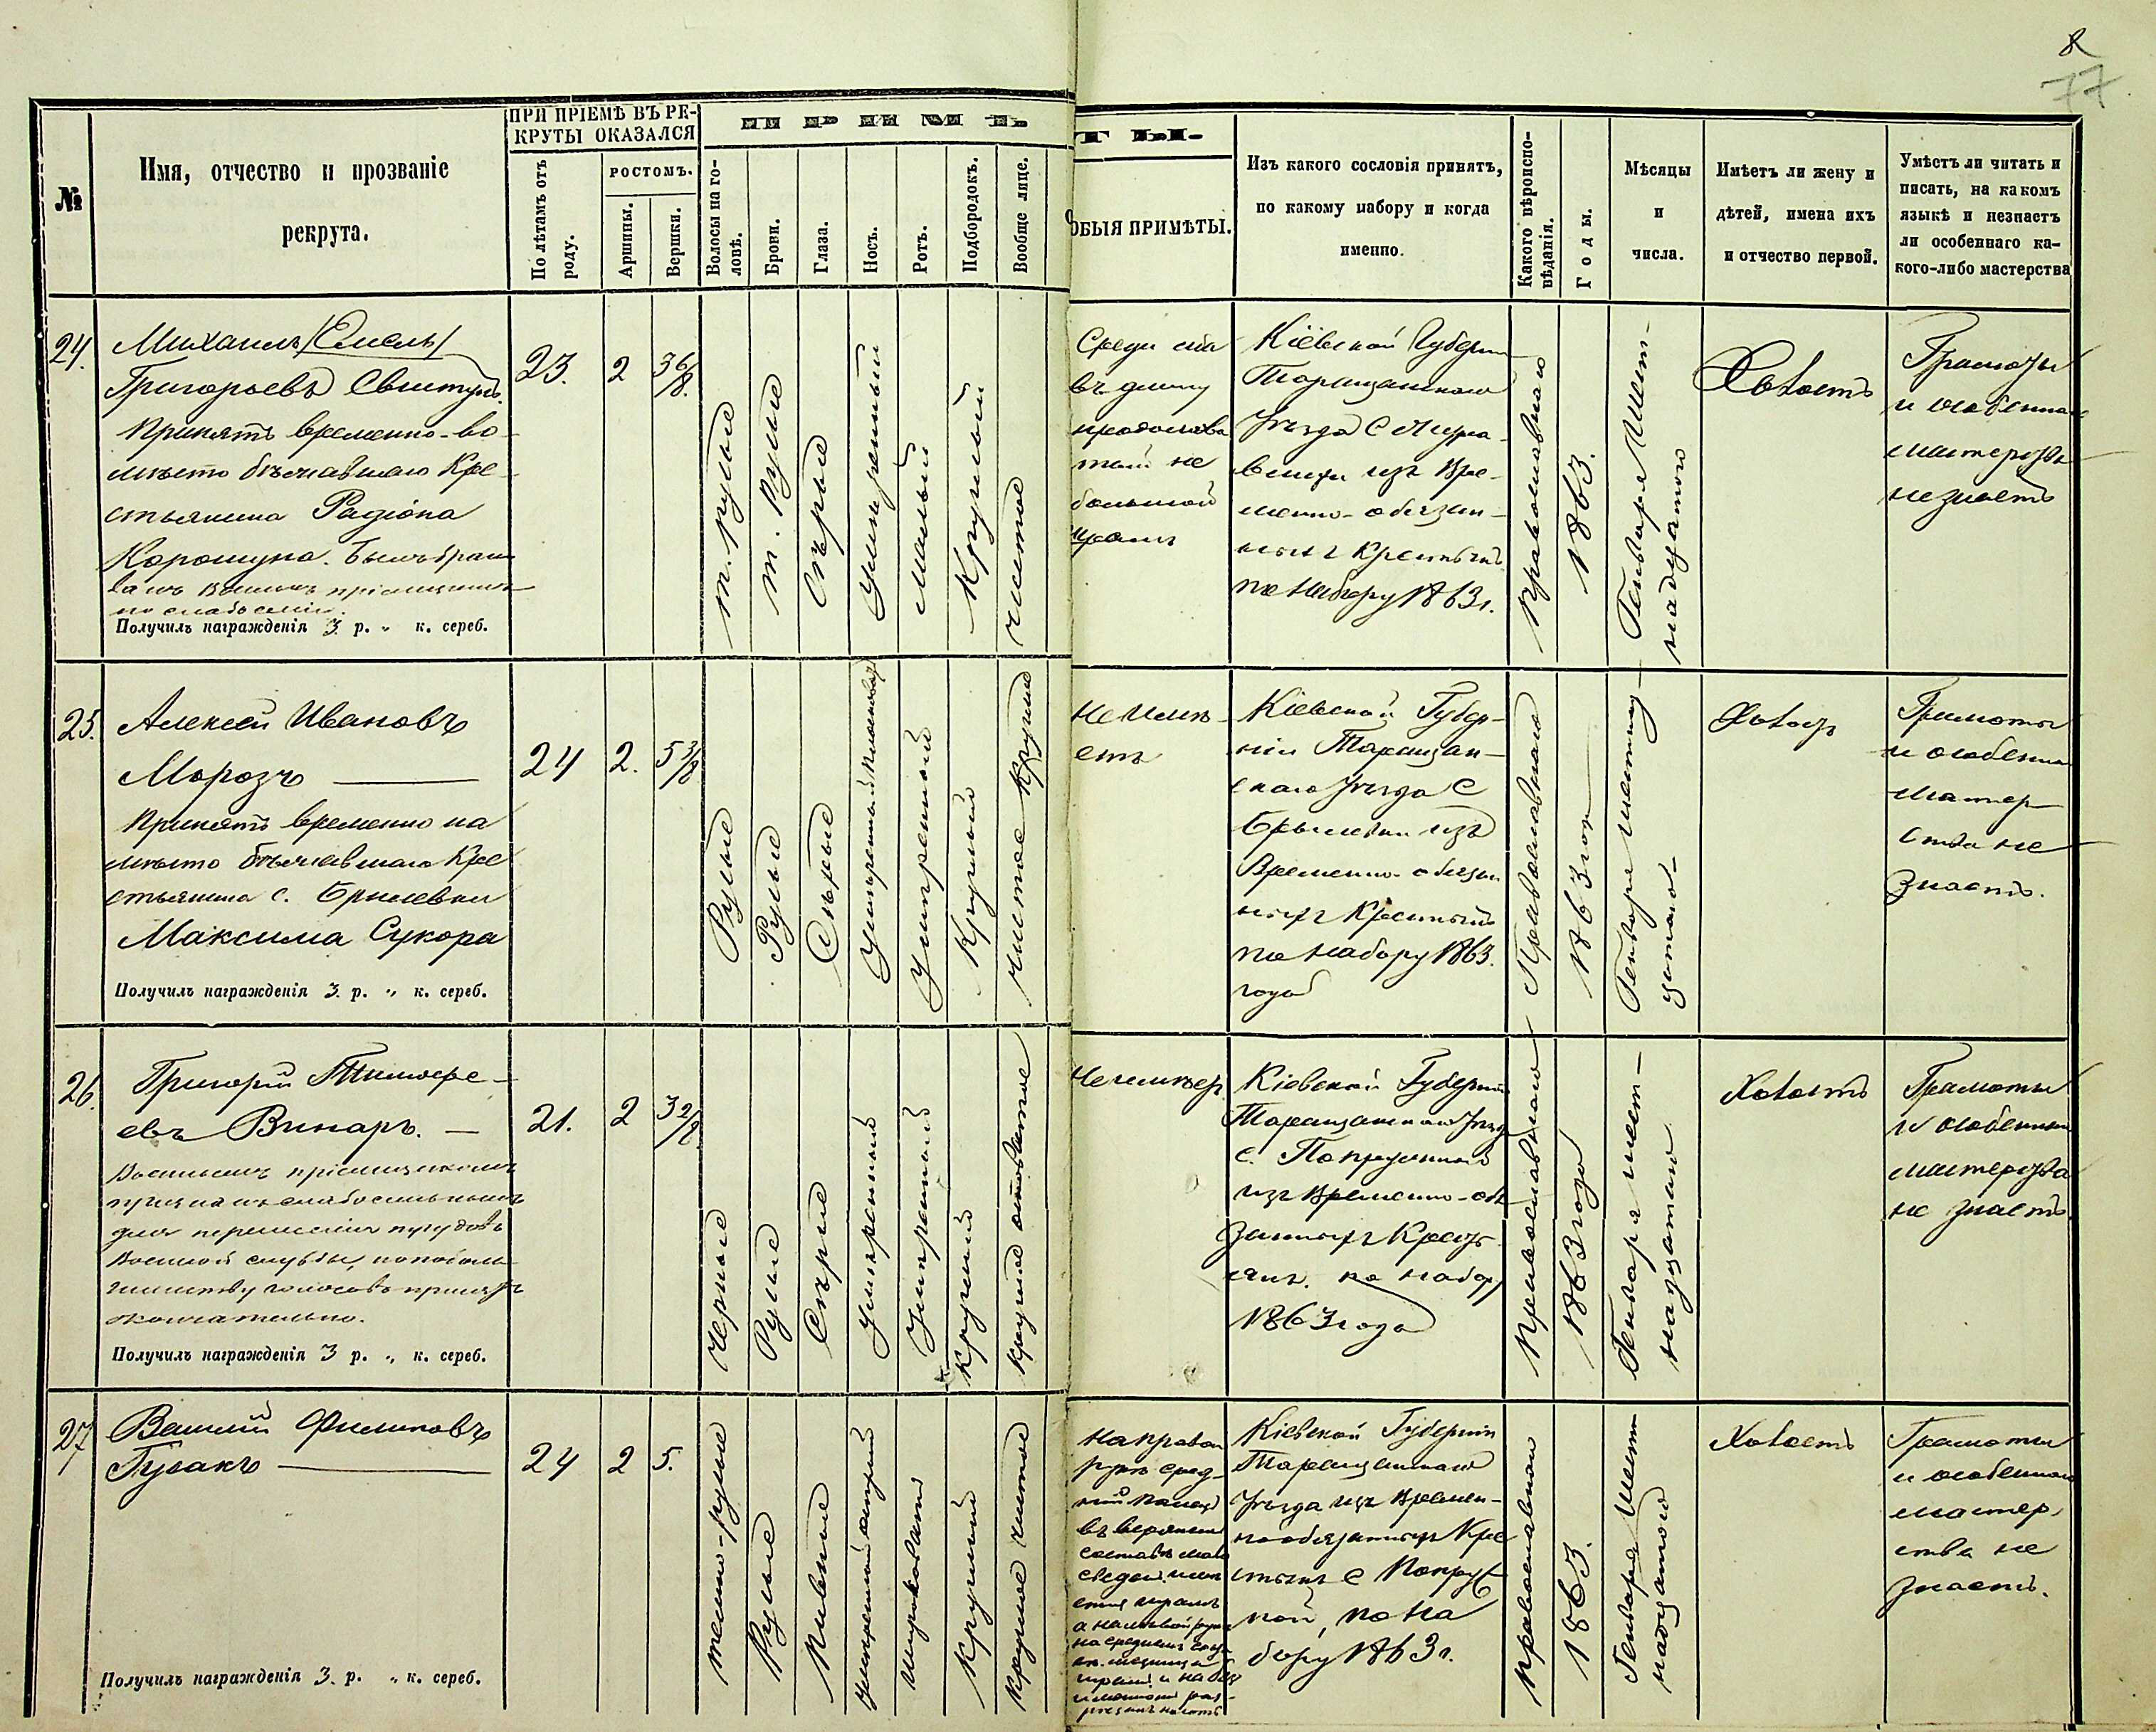 8
77
№
Имя, отчество и прозваніе
рекрута.
ПРИ ПРІЕМѢ ВЪ РЕ-
КРУТЫ ОКАЗАЛСЯ
По лѣтамъ отъ
роду.
РОСТОМЪ.
Аршины.
Вершки.
ПРИМѢ
ТЫ.
Волосы на го-
ловѣ.
Брови.
Глаза.
Носъ.
Ротъ.
Подбородокъ.
Вообще лице.
ОБЫЯ ПРИМѢТЫ.
Изъ какого сословія принятъ,
по какому набору и когда
именно.
Какого вѣроиспо-
вѣданія.
Годы.
Мѣсяцы
и
числа.
Имѣетъ ли жену и
дѣтей, имена ихъ
и отчество первой.
Умѣетъ ли читать и
писать, на какомъ
языкѣ и незнаетъ
ли особеннаго ка-
кого-либо мастерства
24.
Михаилъ
Григорьевъ Свистунъ.
Принятъ временно-во
мѣсто бѣжавшаго Кре
стьянина Радіона
по слабосилію.
Получилъ награжденія 3. р. „ к. сереб.
23.
2
3 6/8.
т. русые
т. Русые
Сѣрые
Умѣренный
малый
Круглый
чистое
большой
шрамъ
Кіевской Губерніи
Таращанскаго
Уѣзда С
изъ Вре-
менно-обязан-
ныхъ Крестьянъ
по набору 1863 г.
Православнаго
1863.
Генваря Шест-
надцатаго
Холостъ
Грамоты
и особеннаго
мастерства
не знаетъ
25.
Алексѣй Ивановъ
Морозъ
Принятъ временно на
мѣсто бѣжавшаго Кре
стьянина с. Брилевки
Максима Сукора
Получилъ награжденія 3. р. „ к. сереб.
24
2.
5 3/8
Русые
Русые
Сѣрые
Умѣренный
Умѣренный
Круглый
Чистое Круглое
Не имѣ-
етъ
Кіевской Губер-
ніи Таращан-
скаго Уѣзда С
Брилевки изъ
Временно-обязан
ныхъ Крестьянъ
по набору 1863.
года
Православнаго
1863 года
Генваря шестнад
цатаго
Холостъ
Грамоты
и особенна
мастер
ства не
Знаетъ.
26.
Григорій Тимофе-
евъ Винаръ.
Военнымъ пріемщикомъ
слабосильнымъ
для перенесенія трудовъ
Военной службы, по боль
шинству голосовъ принятъ
окончательно.
Получилъ награжденія 3 р. „ к. сереб.
21.
2
3 2/8
Черные
Русые
Сѣрые
Умѣренный
Умѣренный
Круглый
Круглое
Не имѣетъ
Кіевской Губерніи
Таращанскаго Уѣзда
с.
изъ Временно-обя
занныхъ Кресть
янъ. по набору
1863 года
Православнаго
1863 года
Генваря шест-
надцатаго
Холостъ
Грамоты
и особеннаго
мастерства
не знаетъ.
27
Василій Филиповъ
Гусакъ
Получилъ награжденія 3. р. „ к. сереб.
24
2
5.
темно-русые
Русые
Пивные
умѣренный
широковатъ
Круглый
Круглое чистое
На правой
рукѣ сред-
ній палецъ
въ верхнемъ
составѣ
Кіевской Губерніи
Таращанскаго
Уѣзда изъ Времен-
нообязанныхъ Кре
стьянъ с
ной, по на
бору 1863 г.
Православнаго
1863.
Генваря Шест
надцатаго
Холостъ
Грамоты
и особеннаго
мастер
ства не
знаетъ.